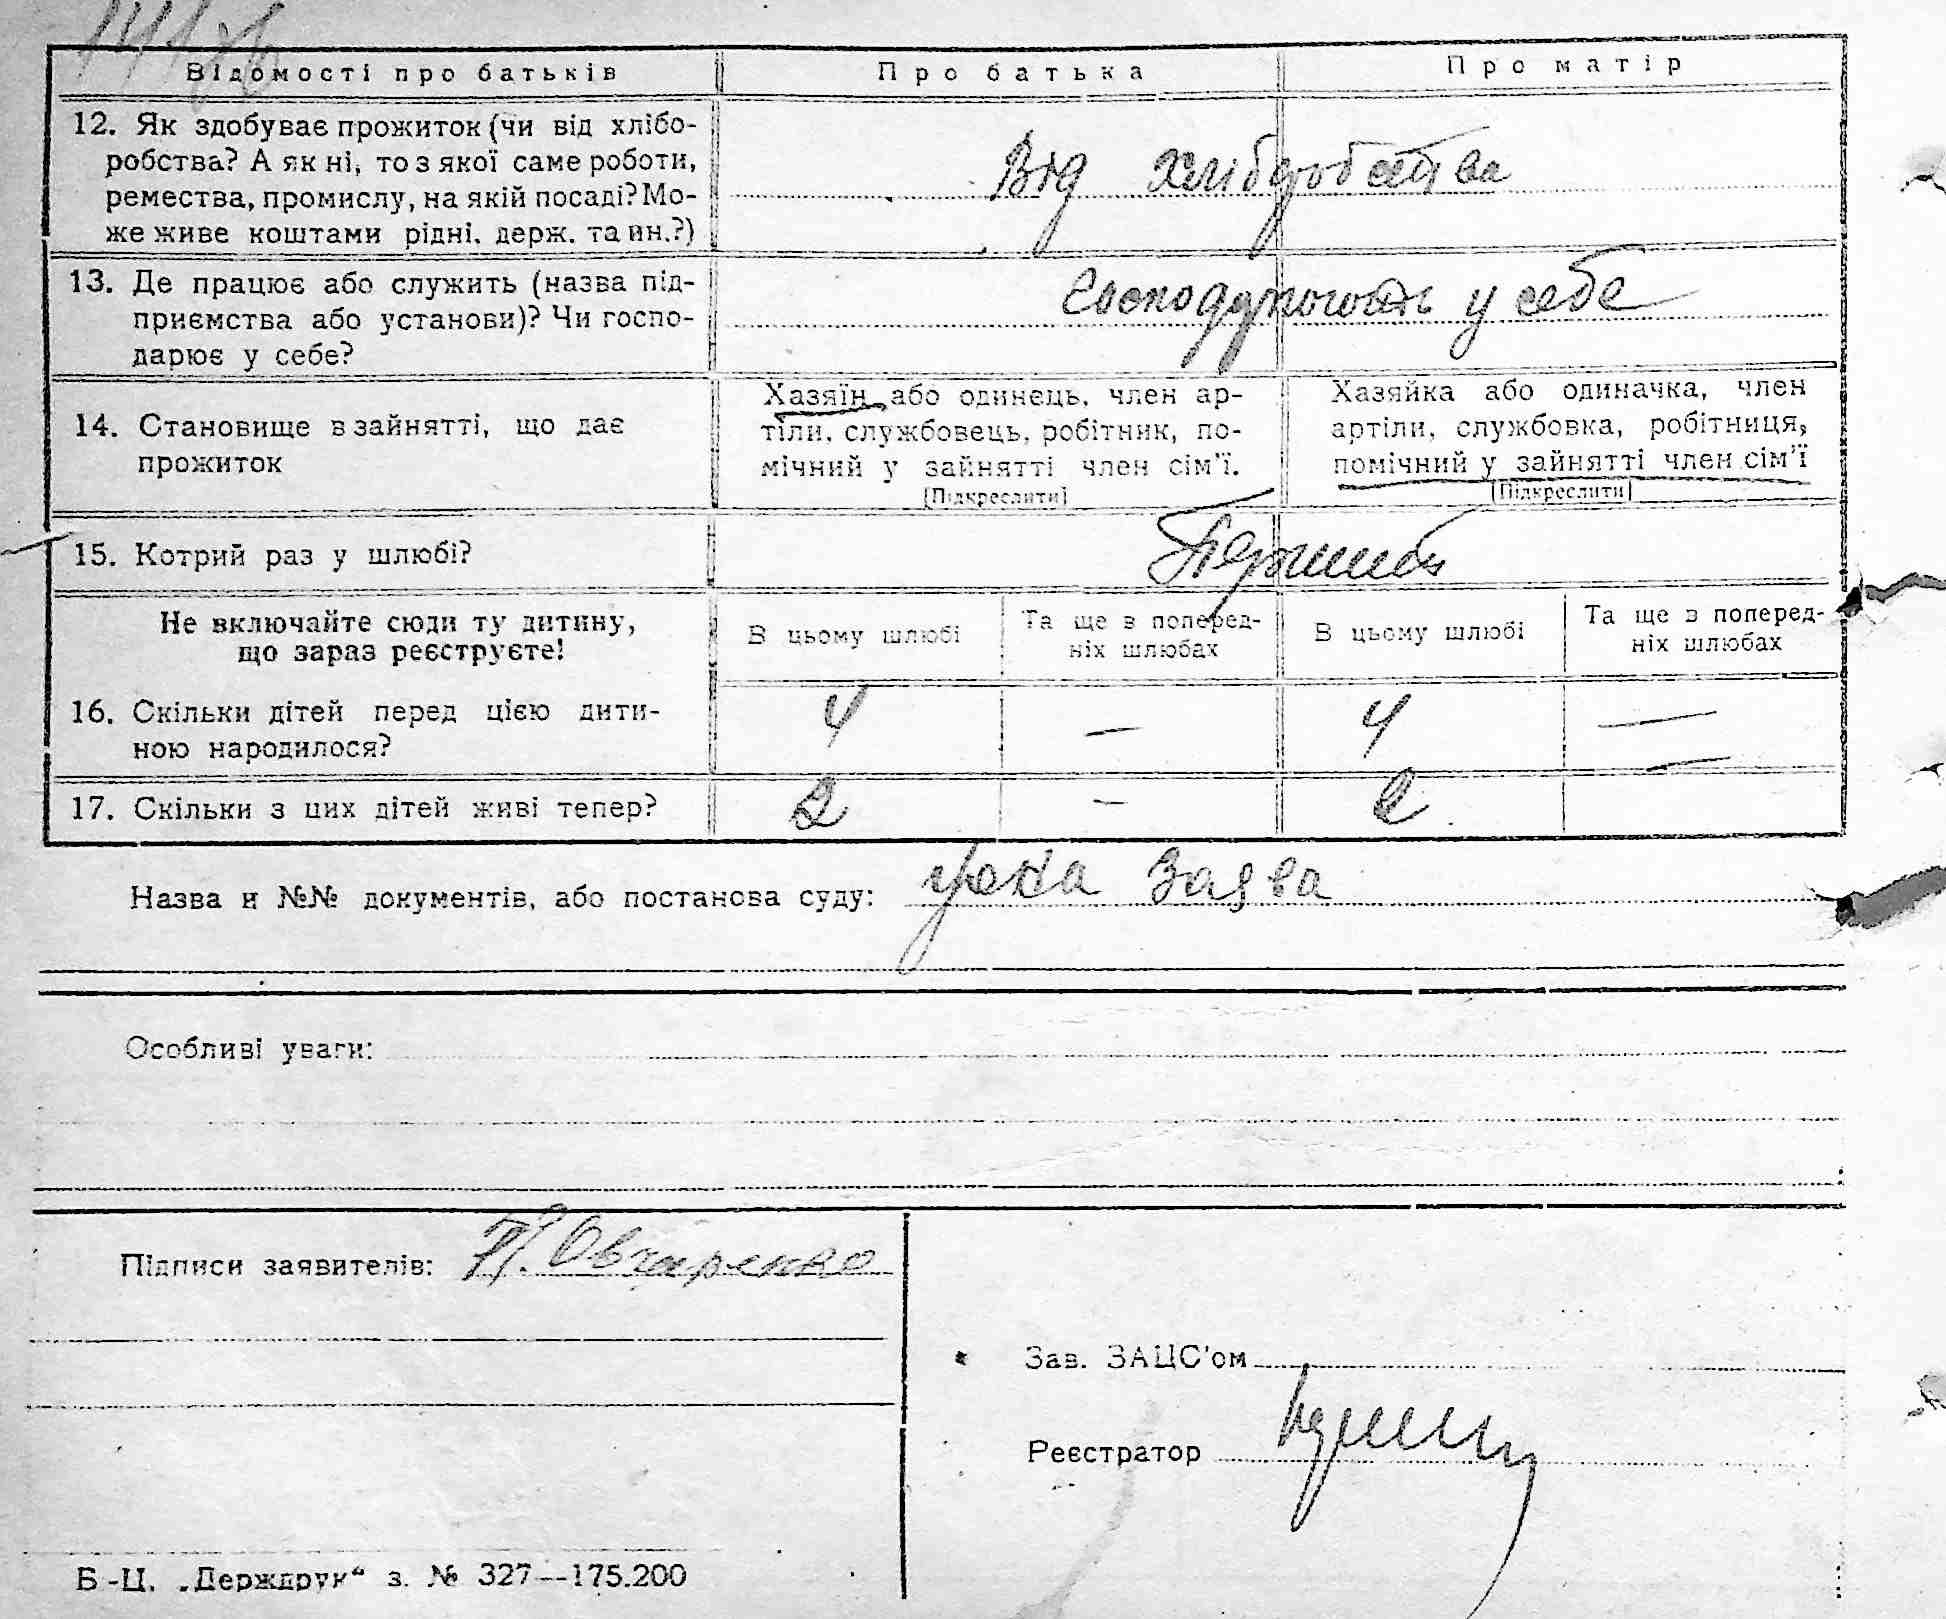 Відомості про батьків
Про батька
Про матір
12. Як здобуває прожиток (чи від хлібо-
робства? А як ні, то з якої саме роботи,
ремества, промислу, на якій посаді? Мо-
же живе коштами рідні, держ. та ин.?)
Від хліборобства
13. Де працює або служить (назва під-
приємства або установи)? Чи госпо-
дарює у себе?
Господарюють у себе
14. Становище в зайнятті, що дає
прожиток
Хазяїн або одинець, член ар-
тіли, службовець, робітник, по-
мічний у зайнятті член сім'ї.
[Підкреслити]
Хазяйка або одиначка, член
артіли, службовка, робітниця,
помічний у зайнятті член сім'ї
[Підкреслити]
15. Котрий раз у шлюбі?
Первий
Не включайте сюди ту дитину,
що зараз реєструєте!
В цьому шлюбі
Та ще в поперед-
ніх шлюбах
В цьому шлюбі
Та ще в поперед-
ніх шлюбах
16. Скільки дітей перед цією дити-
ною народилося?
4 — 4 —
17. Скільки з цих дітей живі тепер?
2 — 2 —
Назва и №№ документів, або постанова суду: заява
Особливі уваги:
Підписи заявителів: Овчаренко
Зав. ЗАЦС'ом
Реєстратор
Б-Ц. „Держдрук“ з. № 327—175.200